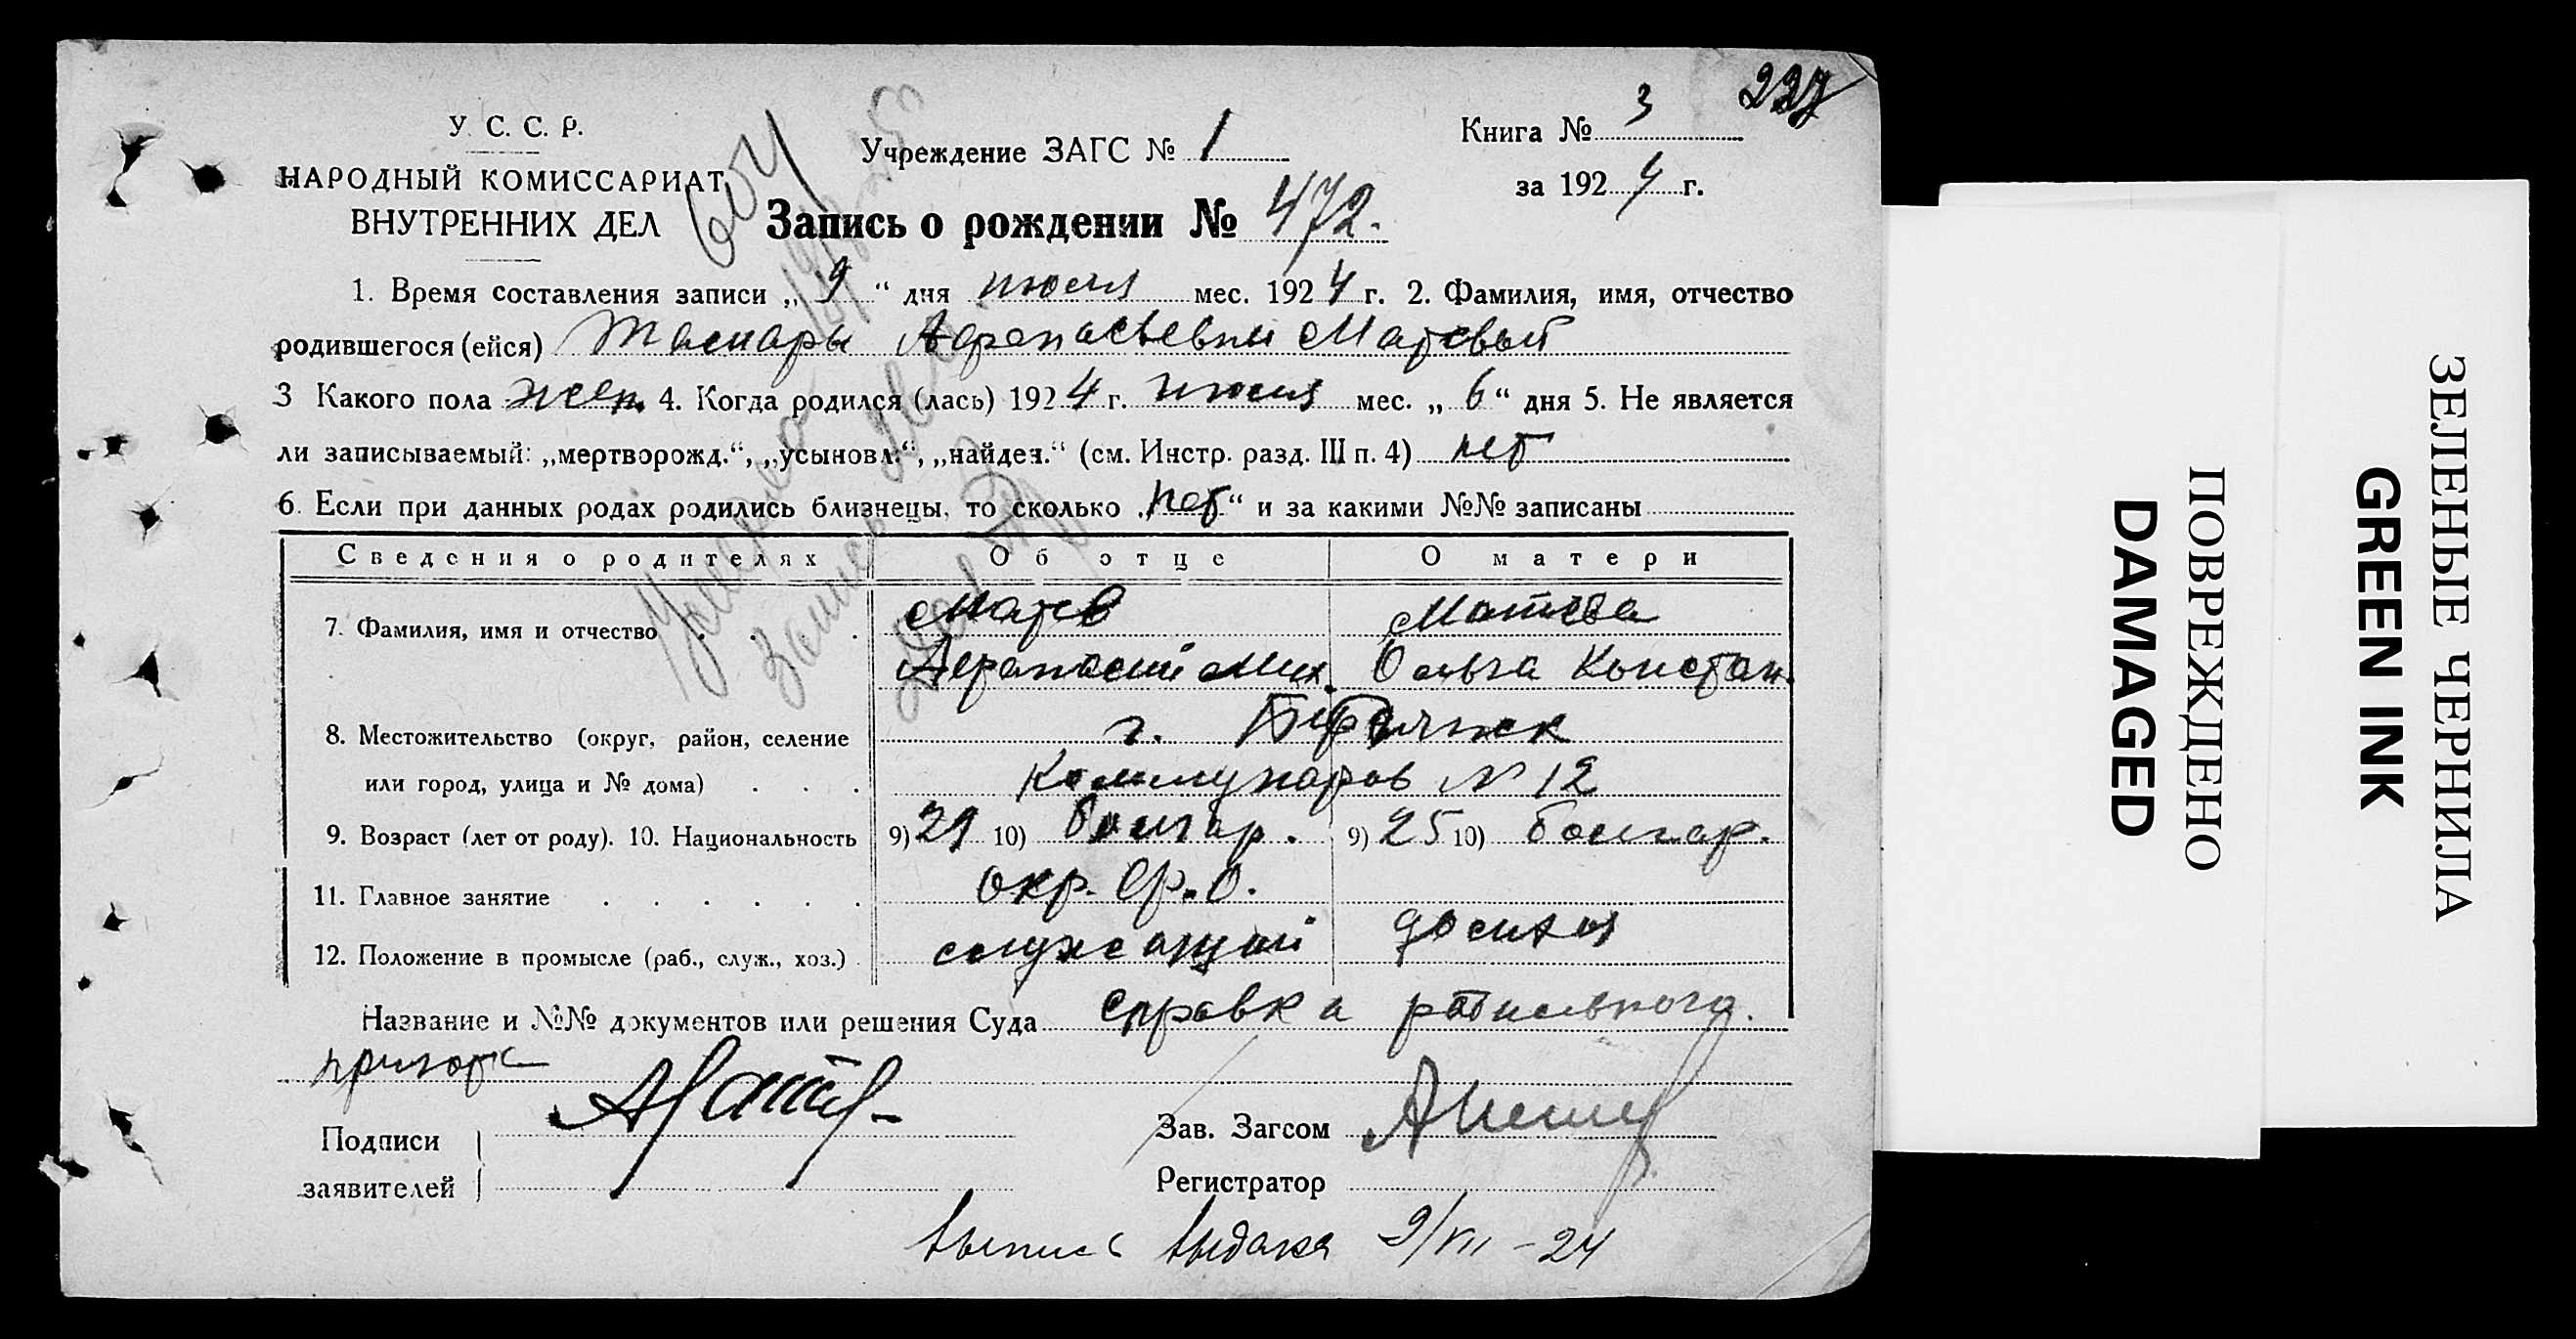 227
У. С. С. Р.
НАРОДНЫЙ КОМИССАРИАТ
ВНУТРЕННИХ ДЕЛ
604
Учреждение ЗАГС № 1
Книга № 3
за 1924 г.
Запись о рождении № 472.
1. Время составления записи „9“ дня июля мес. 1924 г. 2. Фамилия, имя, отчество
родившегося (ейся) Тамары Афанасьевны Матевой
3 Какого пола жен. 4. Когда родился (лась) 1924 г. июля мес. „6“ дня 5. Не является
ли записываемый: „мертворожд.“, „усыновл.“, „найден.“ (см. Инстр. разд. III п. 4) нет
6. Если при данных родах родились близнецы, то сколько „нет“ и за какими №№ записаны
Сведения о родителях Об отце О матери
7. Фамилия, имя и отчество Матев Матева
Афанасий Мих. Ольга Констан.
8. Местожительство (округ, район, селение г.
или город, улица и № дома) Коммунаров № 12
9. Возраст (лет от роду). 10. Национальность 9) 29 10) болгар. 9) 25 10) болгар.
11. Главное занятие Окр.
12. Положение в промысле (раб., служ., хоз.) служащий
Название и №№ документов или решения Суда Справка родильного
приюта
Подписи
заявителей
Зав. Загсом
Регистратор
Выпись выдана 9/VII-24
ПОВРЕЖДЕНО
DAMAGED
ЗЕЛЕНЫЕ ЧЕРНИЛА
GREEN INK